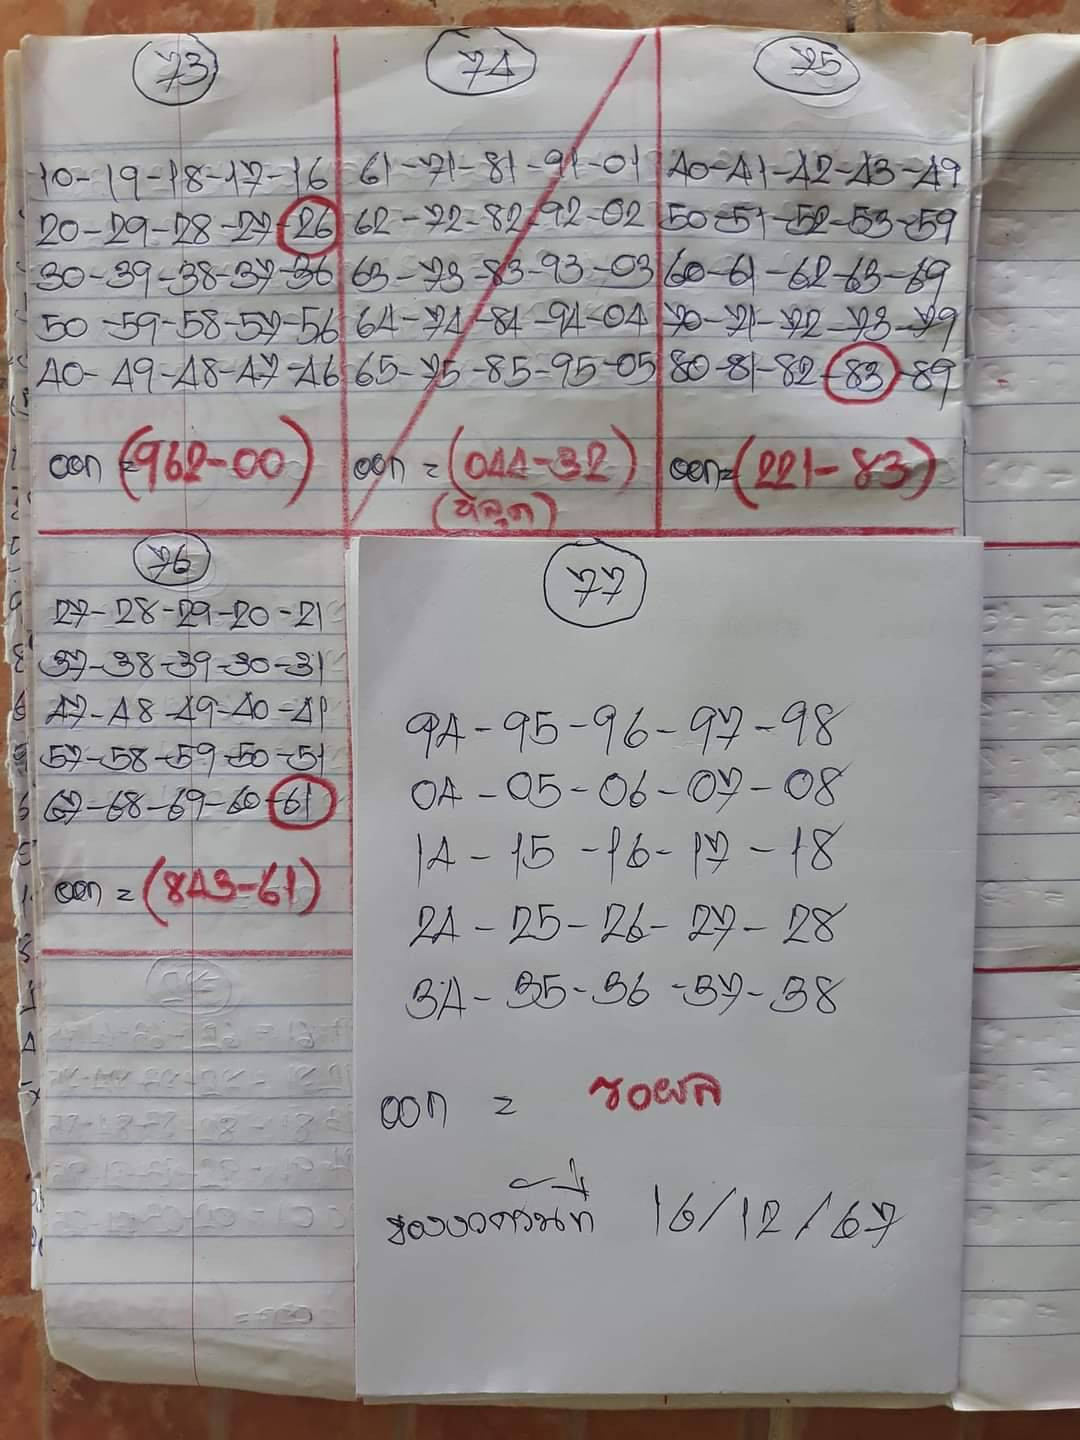 73
10-19-18-17-16
20-29-28-27-26
30-39-38-37-36
50-59-58-57-56
40-49-48-47-46
ออก=(962-00)
74
61-71-81-91-01
62-72-82-92-02
63-73-83-93-03
64-74-84-94-04
65-75-85-95-05
ออก=(044-32)
75
40-41-42-43-49
50-51-52-53-59
60-61-62-63-69
70-71-72-73-79
80-81-82-83-89
ออก=(221-83)
76
27-28-29-20-21
37-38-39-30-31
47-48-49-40-41
57-58-59-50-51
67-68-69-60-61
ออก=(843-61)
77
94-95-96-97-98
04-05-06-07-08
14-15-16-17-18
24-25-26-27-28
34-35-36-37-38
ออก = รอผล
ของงวดวันที่ 16/12/67